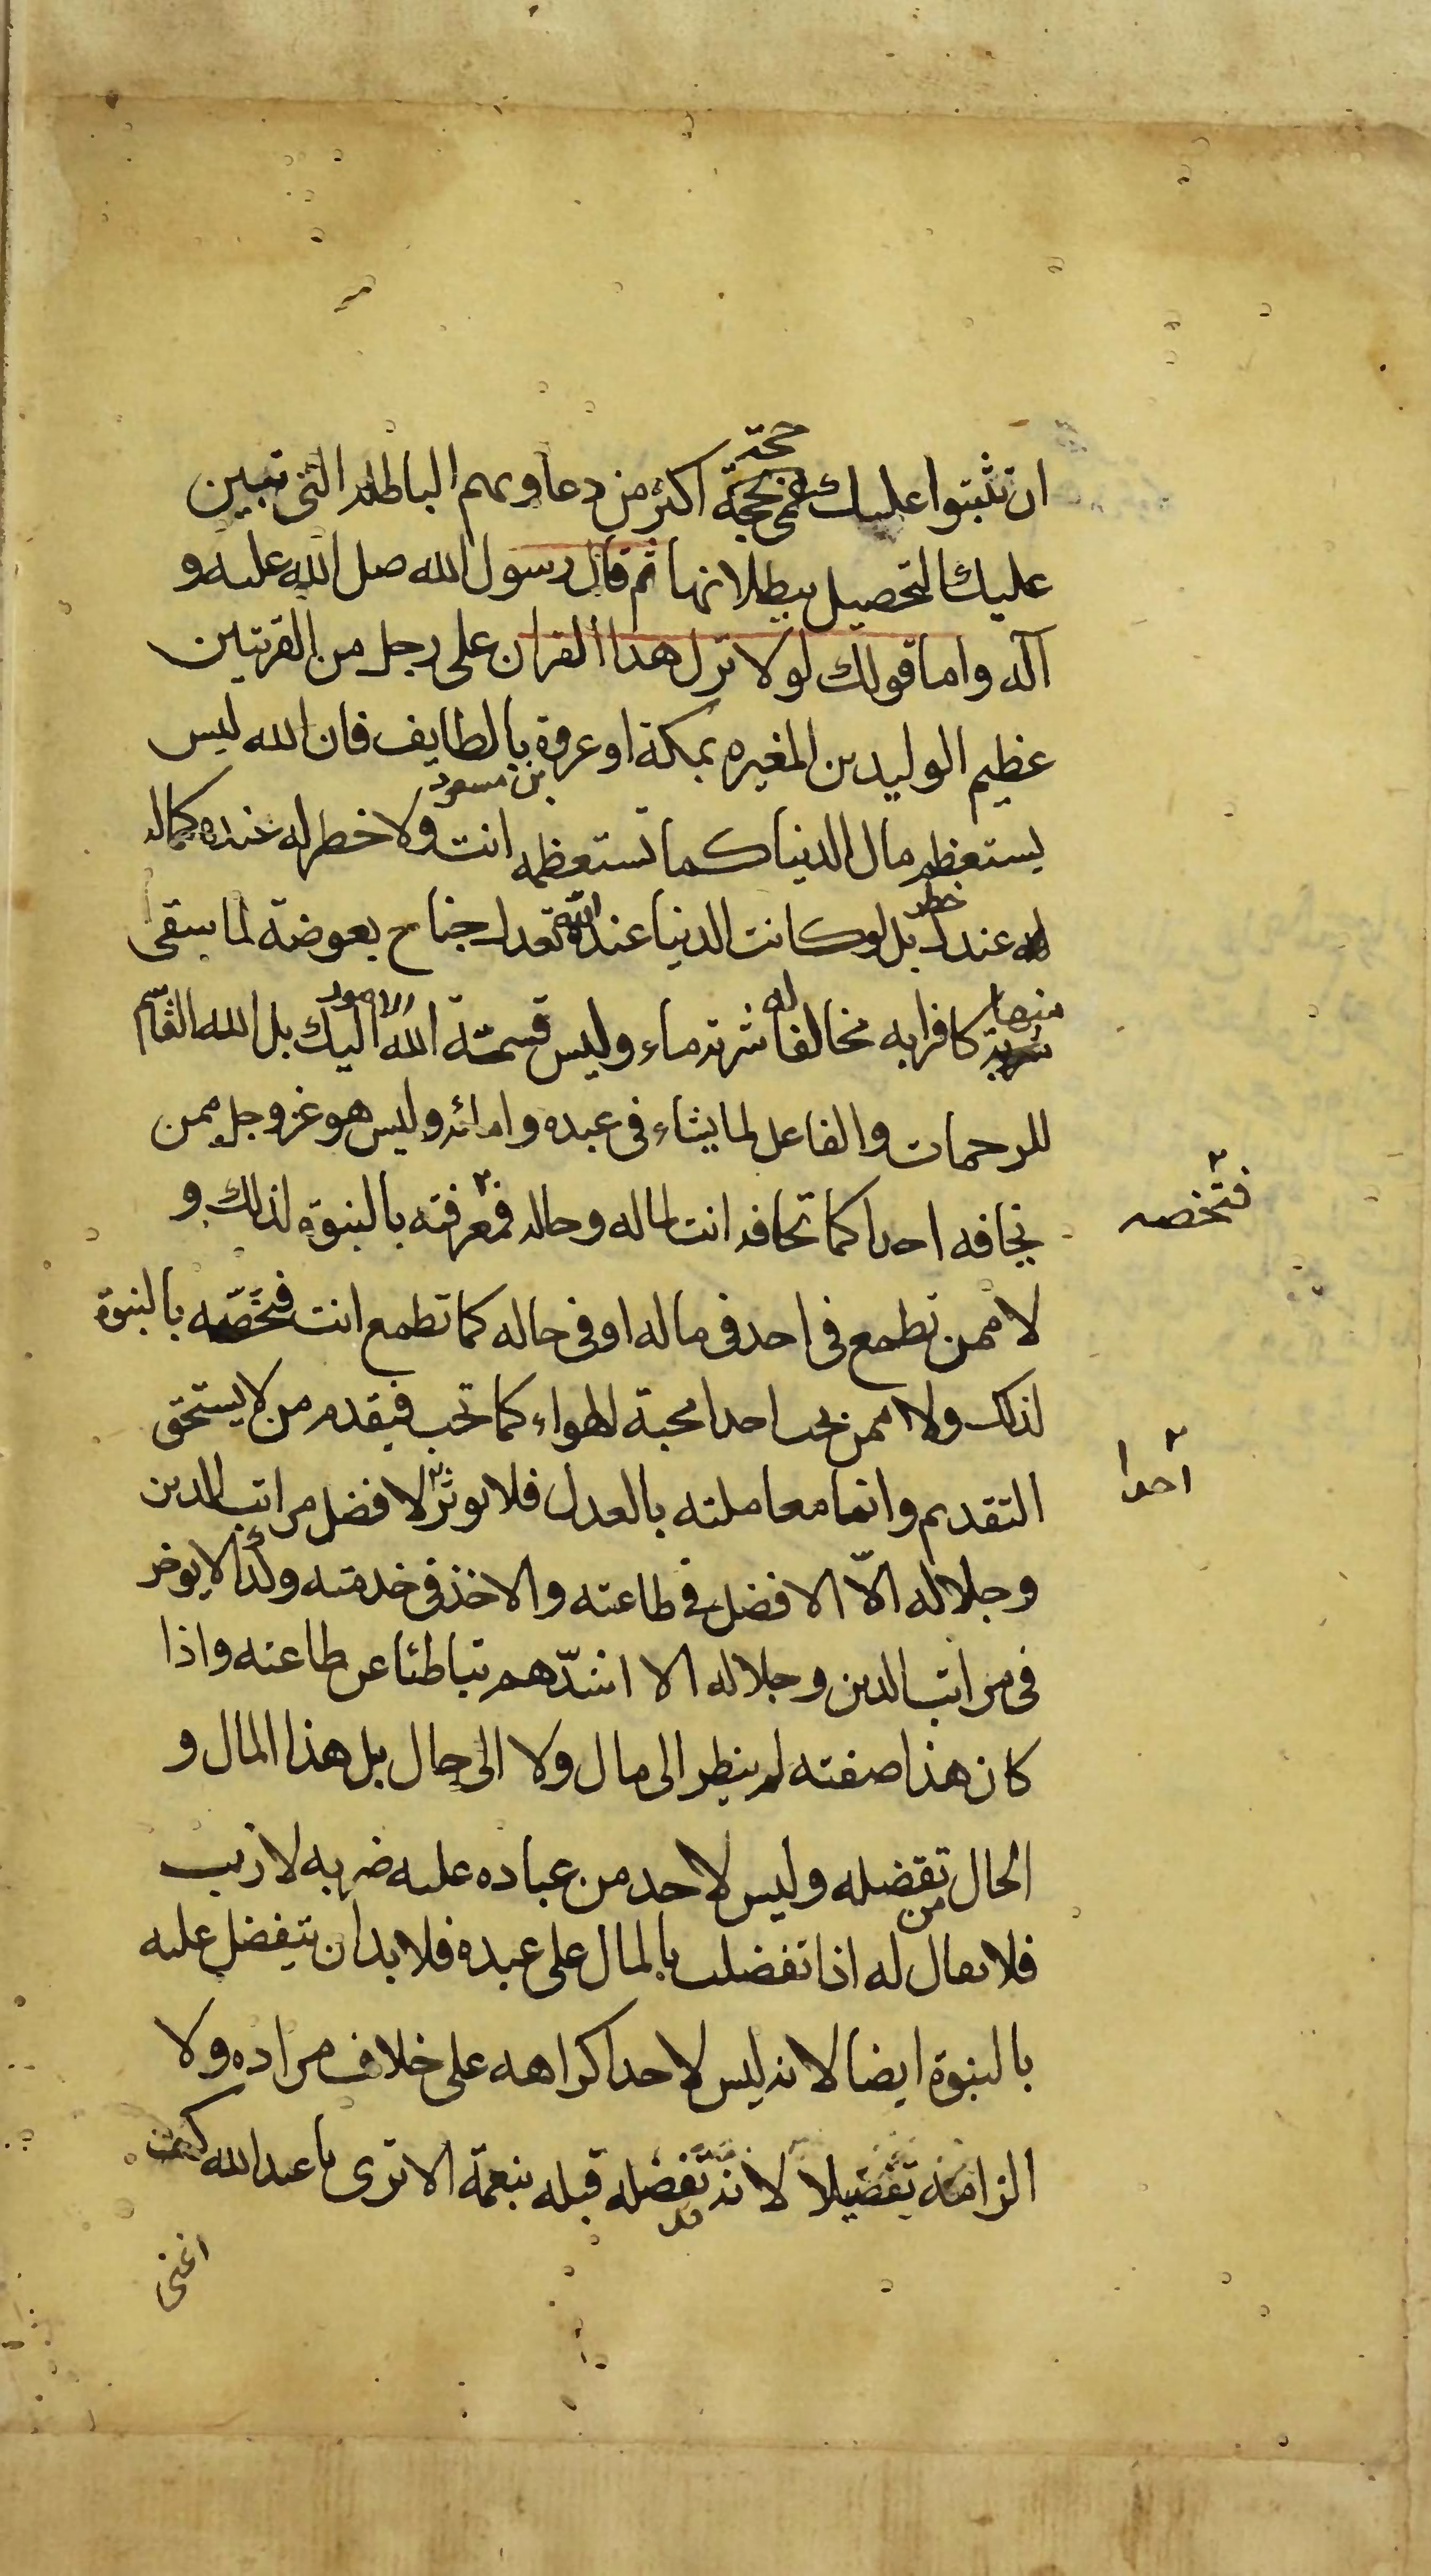 ان تثبتوا عليك عمى بحجة حجة اكثر من دعاويهم الباطله التى تبين
عليك التحصيل ببطلانها ثم قال رسول الله صل الله عليه و
آله واما قولك لولا نزل هذا القران على رجل من القريتين
عظيم الوليد بن المغيره بمكة او عروة بن مسعود بالطايف فان الله ليس
يستعظم مال الدنيا كما تستعظمه انت ولا خطر له عنده كماله
خطر عندك بل لو كانت الدنيا عند الله تعدل جناح بعوضة لما سقى
منها كافرا به مخالفا له شربة ماء وليس قسمة الله الامور اليك بل الله القاسم
للرحمات والفاعل لما يشاء فى عبده وامائه وليس هو عز وجل ممن
يخافه احدا كما تخافه انت لماله وحاله فمعرفته بالنبوة لذلك و
لا ممن تطمع فى احد فى ماله او فى حاله كما تطمع انت فتخصه بالنبوة
فتخصه
لذلك ولا ممن يحب احدا محبة الهواء كما تحب فيقدم من لا يستحق
احدا
التقديم وانما معاملته بالعدل فلا يوثر لافضل مراتب الدين
وجلاله الاّ الافضل فى طاعته والاخذ فى خدمته وكذا لا يوخر
فى مراتب الدين وجلاله الا اشدّهم تباطئا عن طاعته واذا
كان هذا صفته لم ينظر الى مال ولا الى حال بل هذا المال و
الحال من تفضله وليس لاحد من عباده عليه ضربه لازب
فلا يقال له اذا تفضلت بالمال على عبده فلا بد ان تتفضل عليه
بالنبوة ايضا لانه ليس لاحد اكراهه على خلاف مراده ولا
الزامه تفضيلا لانه تفضله قبله بنعمة الا ترى يا عبدالله كيف
اغنى